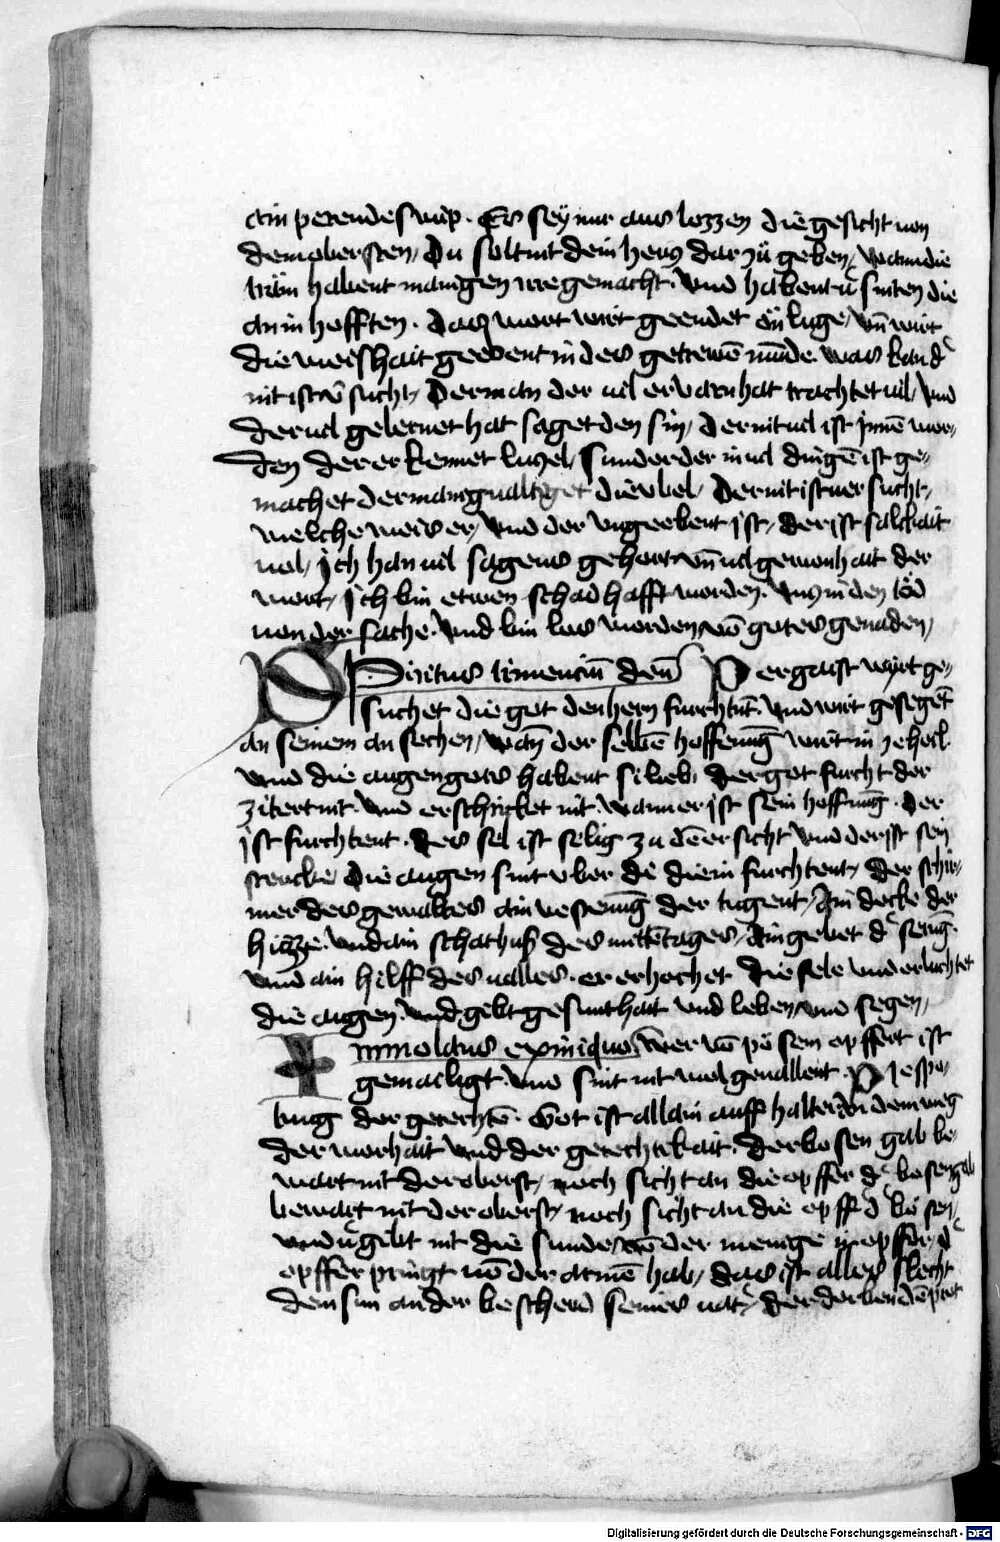 ain perendes wip. Es sey nur aus lozzen die gesicht von
dem obersten, Du solt nit dein hercz dar zu geben, wann die
träm habent manigen irre gemacht. und habent v̾ suiten die
an in hofften. Das wort wirt geendet on luge, vn̄ wirt
die weishait geebent in des getrewē munde. was kan d̾
nit ist v̾sucht, Der man der vil ervarn hat trachtet vil, vnd
der vil gelernet hat saget den sin, der nit vil ist jnnē wor-
den der erkennet luczel, sunder der in vil dingē ist ge-
machet der manigualtiget die vbel, der nit ist versucht,
welche weis er, vnd der vngeebent ist, der ist salckait
vol, Ich han vil sagens gehort vn̄ vil gewonhait der
wort, ich bin etwen schadhafft worden. vncz in den tod
von der sache. vnd bin los worden vō gotes genaden,
Spiritus timenciū deū Der gaist wirt ge-
suchet die got den hern furchtēt. vnd wirt gesegēt
an seinem an sechen, wan̄ der selbē hoffenūg wirt in ze hail.
vnd die augen gotes habent si lieb, der got furcht der
zitert nit. vnd erschricket nit. wann er ist sein hoffnūg. der
ist furchtent. des sel ist selig zu dē er sicht vnd der ist sein
stercke, Die augen sint vber die die in furchtent, der schir-
mer des gewaltes ain vestenūg der tugent, Ain decke der
hicze. vnd ain schathuß des mittētages, Ain gebet d̾ senūg.
vnd ain hilff des valles. er erhochet die sele vnd erluchtet
die augen. vnd gebt gesunthait vnd leben vnd segen,
Immolans ex iniquo, wer vō pösem opffert ist
gemackligt vnd sint nit wol geuallent. Die spo-
tung der gerechtē. Got ist allain auff halter in dem weg
der warhait vnd der gerechtikait. der bosen gab be-
wart nit der oberst, noch sicht an die opffer d̾ bosen gab
bewart nit der oberst, noch sicht an die opff d̾ bösen,
vnd v̾gibt nit die sunde, vō der menige ir opffer, d̾
opffer pringt vō der armē hab, das ist alles slecht
dem sun an der bescherd seines vat̾, der der ben dē prot
Digitalisierung gefördert durch die Deutsche Forschungsgemeinschaft - DFG